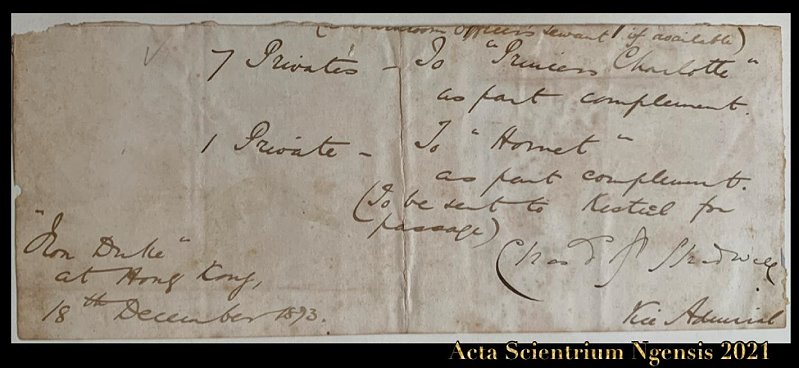 Officers servant if available)
7 Privates – To "Princess Charlotte"
as part complement.
1 Private – To "Hornet"
as part complement.
(To be sent to Kestrel for
passage)
"Iron Duke"
at Hong Kong,
18th December 1873.
Chas Shadwell
Vice Admiral
Acta Scientrium Ngensis 2021